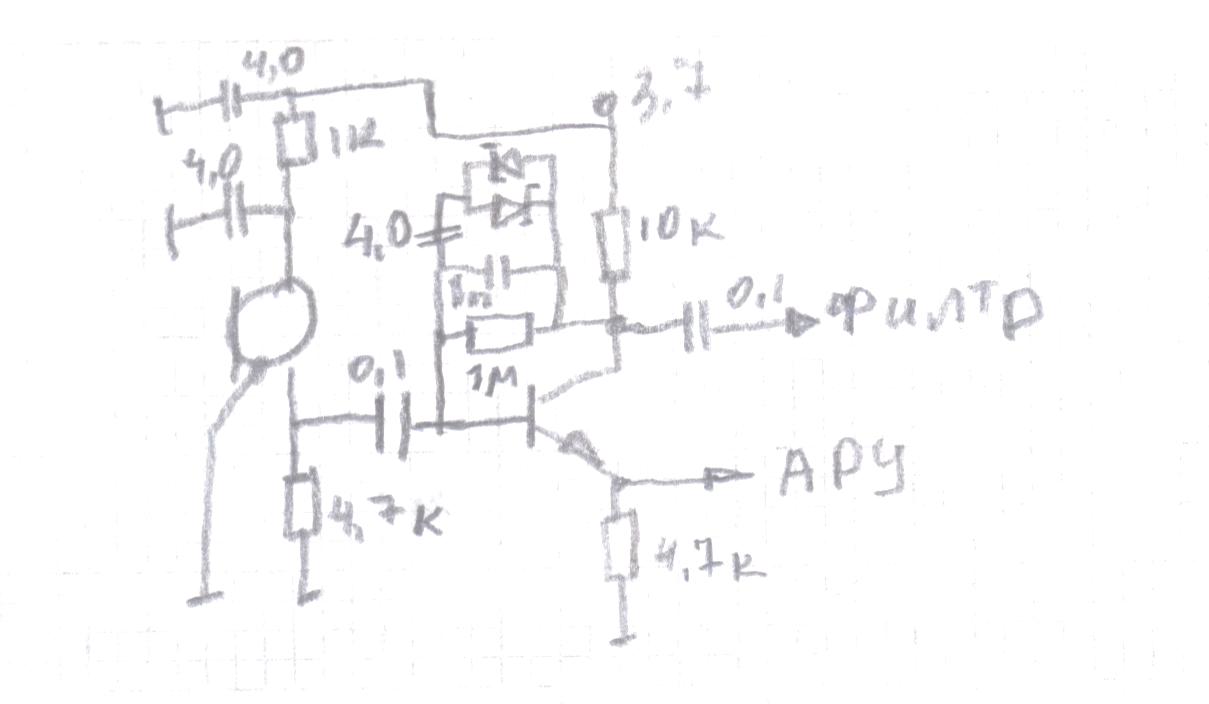 4,0
3,7
1К
4,0
4,0
10К
0,1
ФИЛТР
1м
0,1
АРУ
4,7К
4,7К